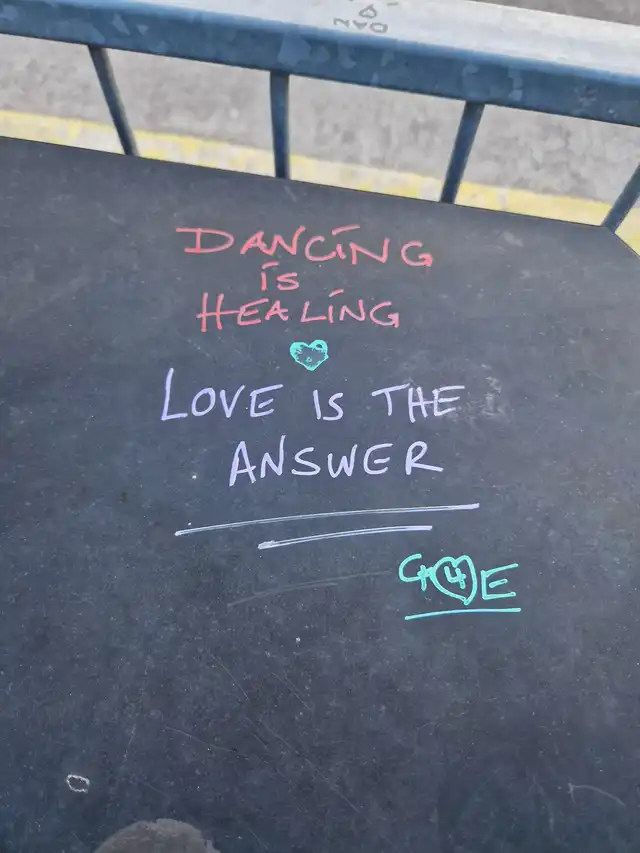 DANCING
is
HEALING
LOVE IS THE
ANSWER
G4E